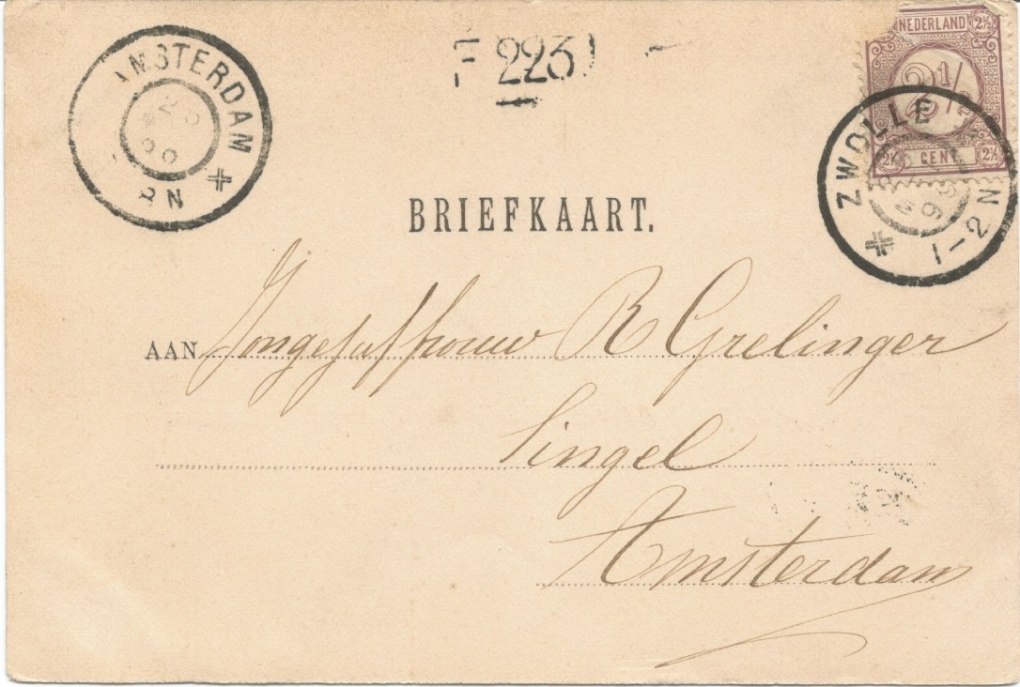 AMSTERDAM
223
NEDERLAND 2½
2½
2½ CENT 2½
ZWOLLE
1-2N
BRIEFKAART.
AAN Jongejuffrouw R Grelinger
Singel
Amsterdam